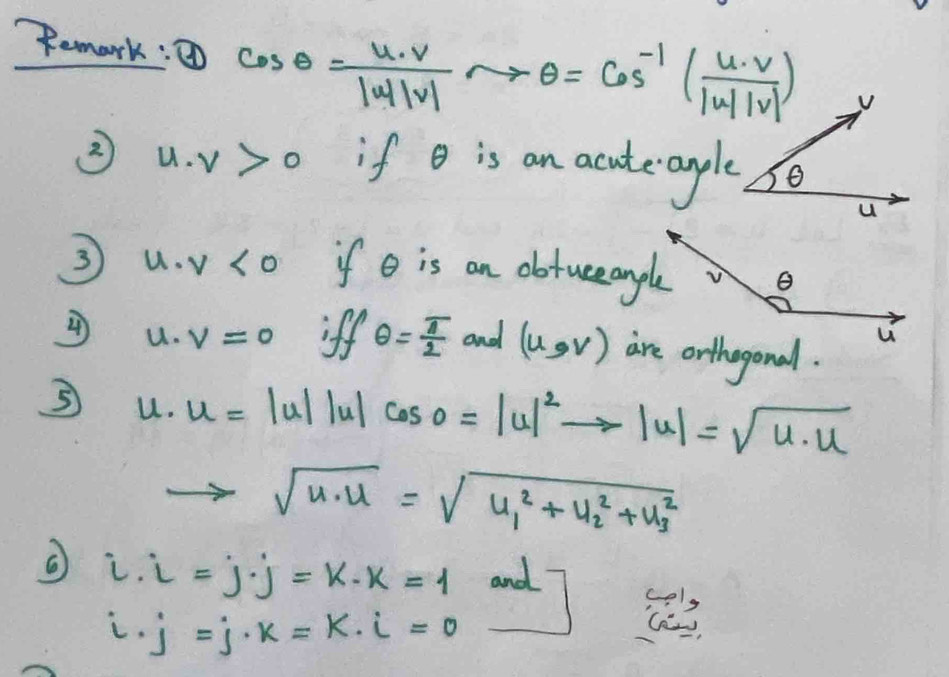 Remark: ① Cos θ = u.v / |u||v| ⇝ θ = Cos⁻¹ (u.v / |u||v|)
② u.v > 0 if θ is an acute angle
v
θ
u
③ u.v < 0 if θ is an obtuce angle
v
θ
u
④ u.v = 0 iff θ = π/2 and (u و v) are orthogonal.
⑤ u.u = |u||u| cos 0 = |u|² → |u| = √u.u
→ √u.u = √u₁² + u₂² + u₃²
⑥ i.i = j.j = K.K = 1 and
i.j = j.K = K.i = 0
واجب